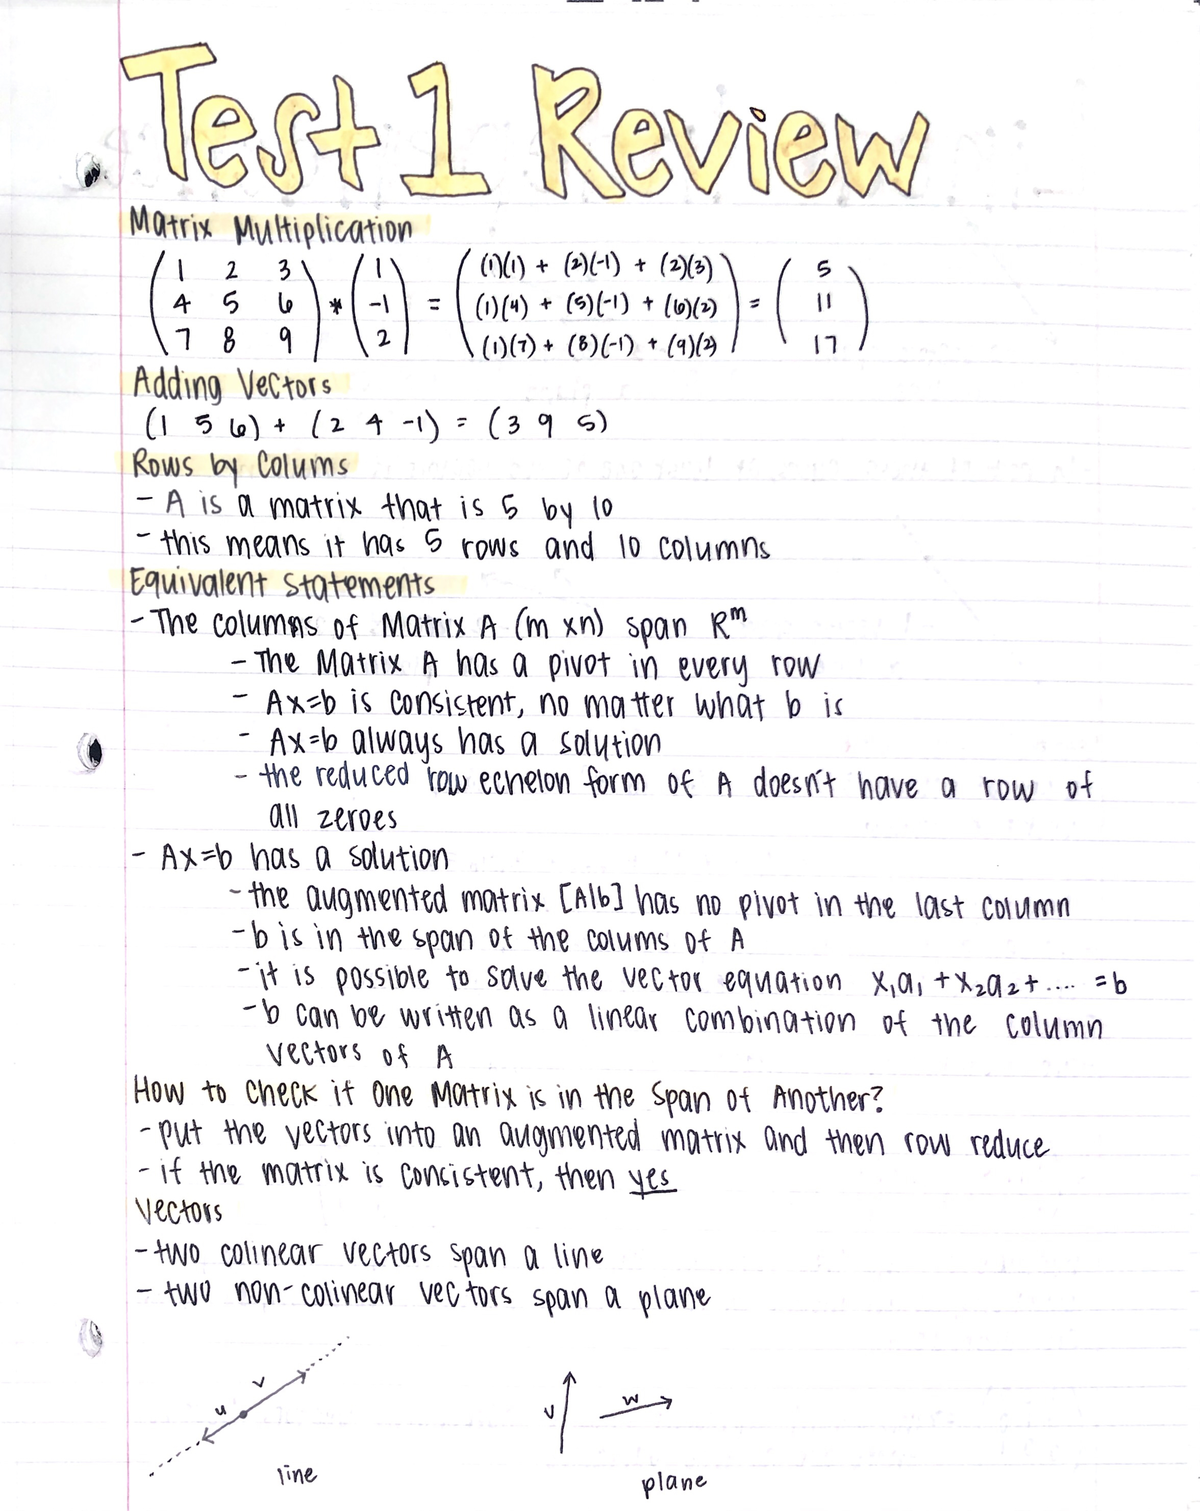 Test 1 Review
Matrix Multiplication
( 1 2 3 ) ( 1 ) ( (1)(1) + (2)(-1) + (2)(3) ) ( 5 )
( 4 5 6 ) * ( -1 ) = ( (1)(4) + (5)(-1) + (6)(2) ) = ( 11 )
( 7 8 9 ) ( 2 ) ( (1)(7) + (8)(-1) + (9)(2) ) ( 17 )
Adding Vectors
(1 5 6) + (2 4 -1) = (3 9 5)
Rows by Colums
- A is a matrix that is 5 by 10
- this means it has 5 rows and 10 columns
Equivalent Statements
- The columns of Matrix A (m xn) span Rᵐ
- The Matrix A has a pivot in every row
- Ax=b is consistent, no matter what b is
- Ax=b always has a solution
- the reduced row echelon form of A doesn't have a row of
all zeroes
- Ax=b has a solution
- the augmented matrix [A|b] has no pivot in the last column
- b is in the span of the colums of A
- it is possible to solve the vector equation x₁a₁ + x₂a₂ + .... = b
- b can be written as a linear combination of the column
vectors of A
How to Check if One Matrix is in the Span of Another?
- put the vectors into an augmented matrix and then row reduce
- if the matrix is consistent, then yes
Vectors
- two colinear vectors span a line
- two non-colinear vectors span a plane
u v
v w
line
plane